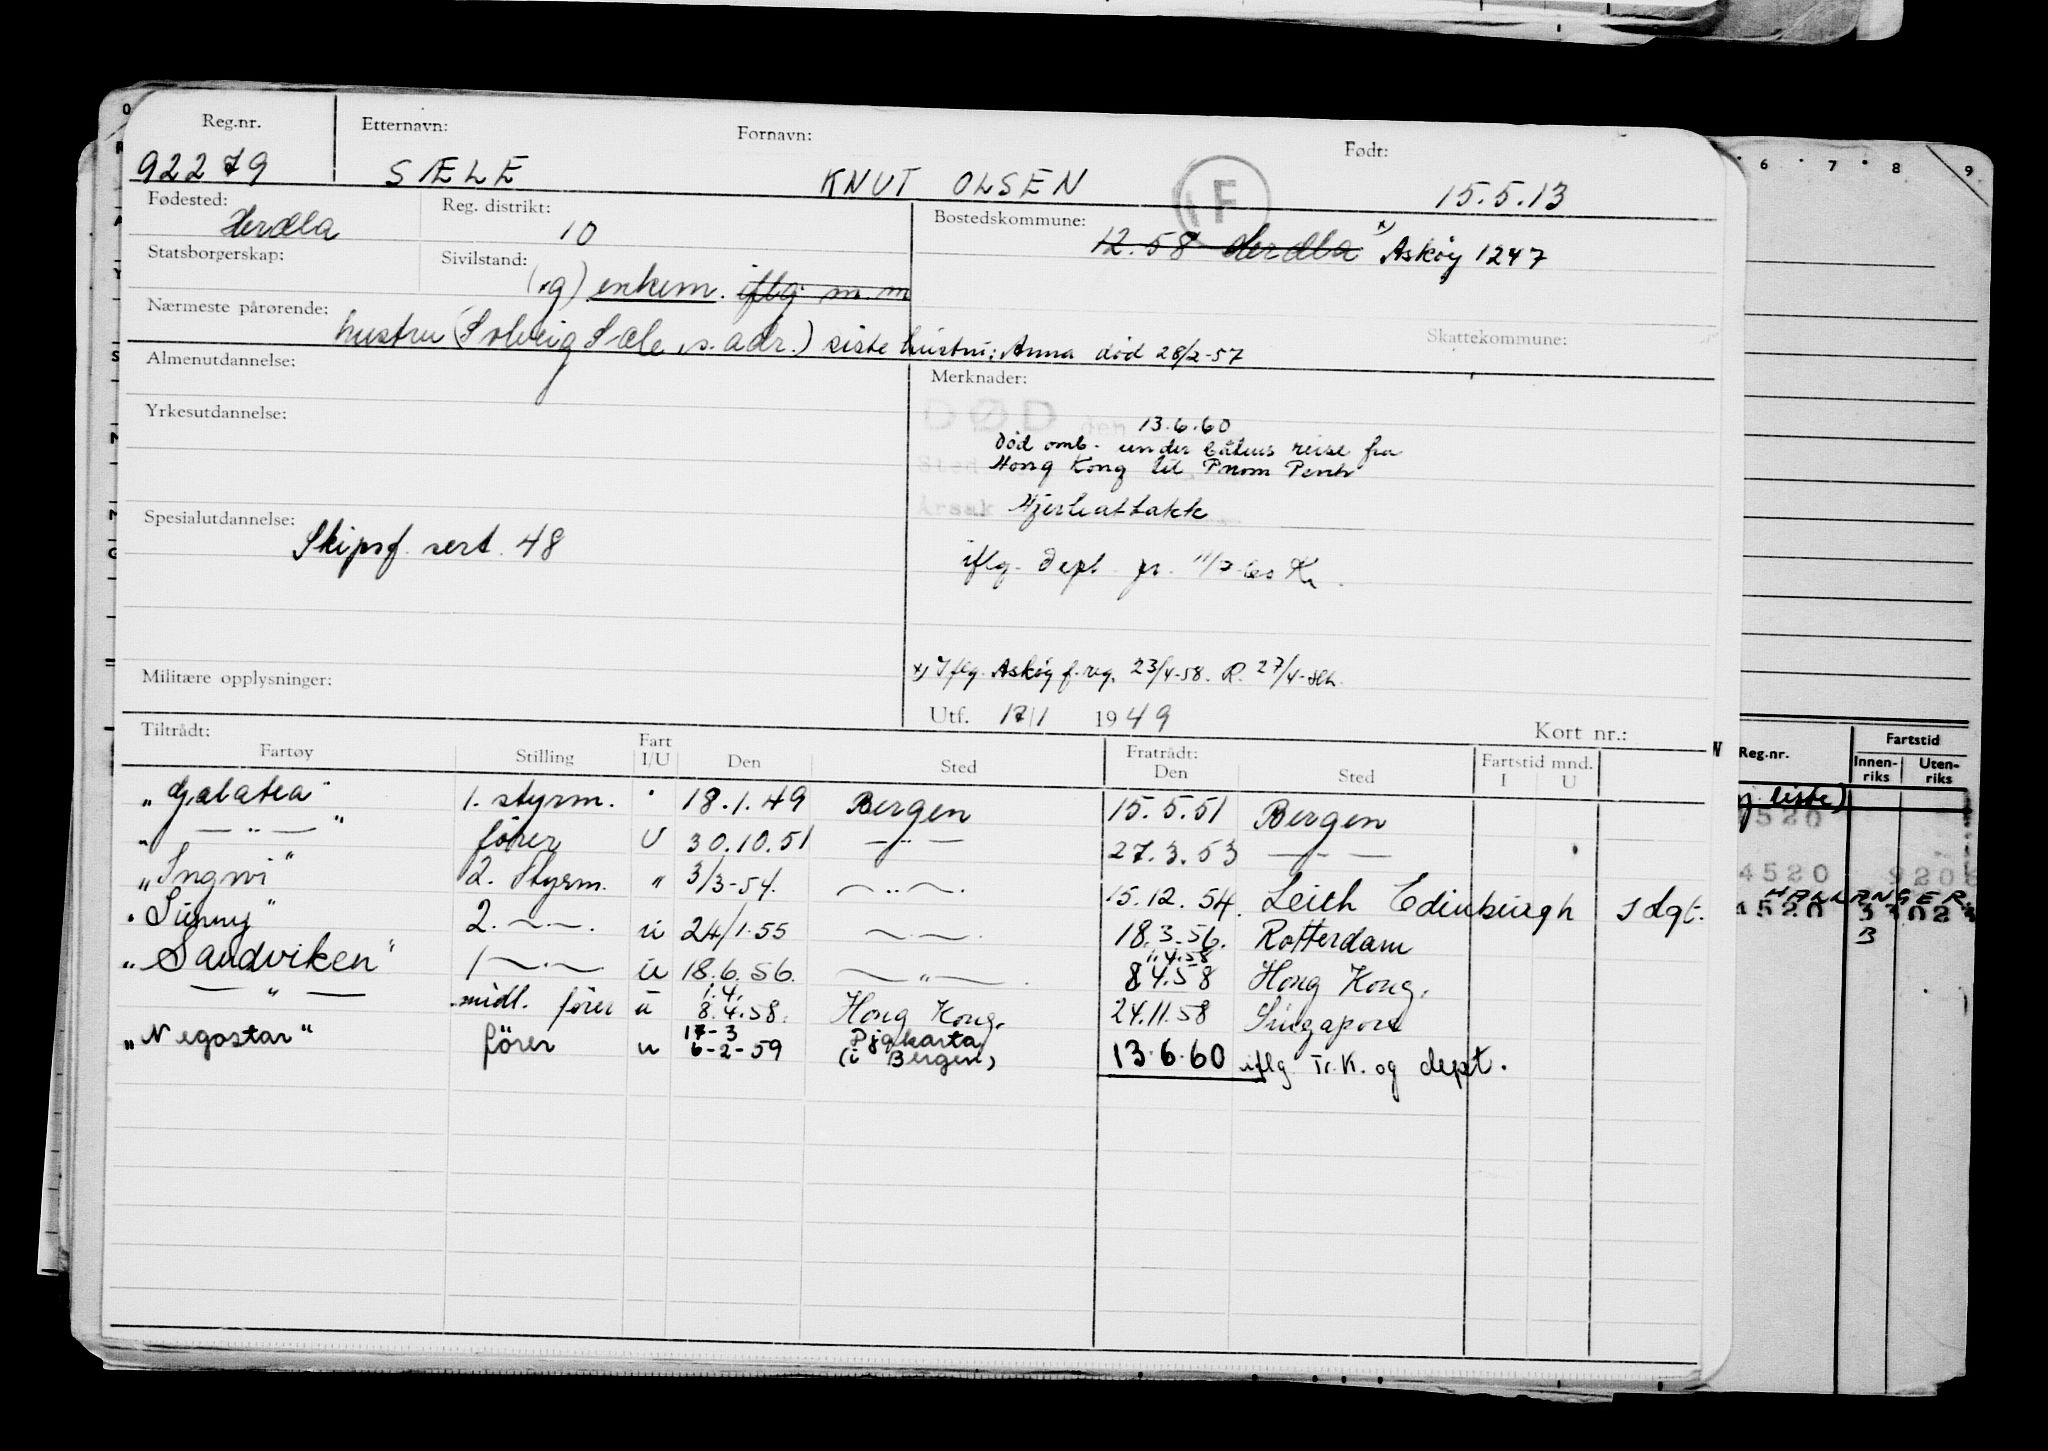 Reg.nr. Etternavn: Fornavn: Født:
92279 SÆLE KNUT OLSEN F 15.5.13
Fødested: Herdla Reg. distrikt: 10 Bostedskommune: 12.58 Herdla x) Askøy 1247
Statsborgerskap: Sivilstand: (g) enkem. iflg. m.m
Nærmeste pårørende: hustru (Solveig Sæle, s. adr.) siste hustru: Anna død 28/2-57 Skattekommune:
Almenutdannelse: Merknader:
Yrkesutdannelse: DØD den 13.6.60
død omb. under båtens reise fra
Sted Hong Kong til Pnom Penh
Årsak Hjerteattakk
Spesialutdannelse: Skipsf. sert. 48
iflg. dept. pr.
Militære opplysninger: x) Iflg. Askøy f. reg. 23/4-58. R. 27/4-
Utf. 17/1 1949 Kort nr.:
Tiltrådt: Fratrådt:
Fartøy Stilling Fart I/U Den Sted Den Sted Fartstid mnd. I U
"Galatea" 1. styrm. 18.1.49 Bergen 15.5.51 Bergen
" — " — " fører U 30.10.51 — " — 27.3.53 — " —
"Ingwi" 2. Styrm. " 3/3-54. — " — 15.12.54. Leith Edinburgh
"Sunny" 2. — " — u 24/1.55 — " — 18.3.56. Rotterdam
"Sandviken" 1 — " — u 18.6.56. — " — 8.4.58 Hong Kong.
— " — midl. fører u 1.4. 8.4.58. Hong Kong. 24.11.58 Singapore
"Negostar" fører u 17-3 6-2-59 Djakarta (i Bergen) 13.6.60 iflg Tr.K. og dept.
6 7 8 9
Reg.nr. Fartstid
Innenriks Utenriks
liste)
4520
4520
HALLANGER
B